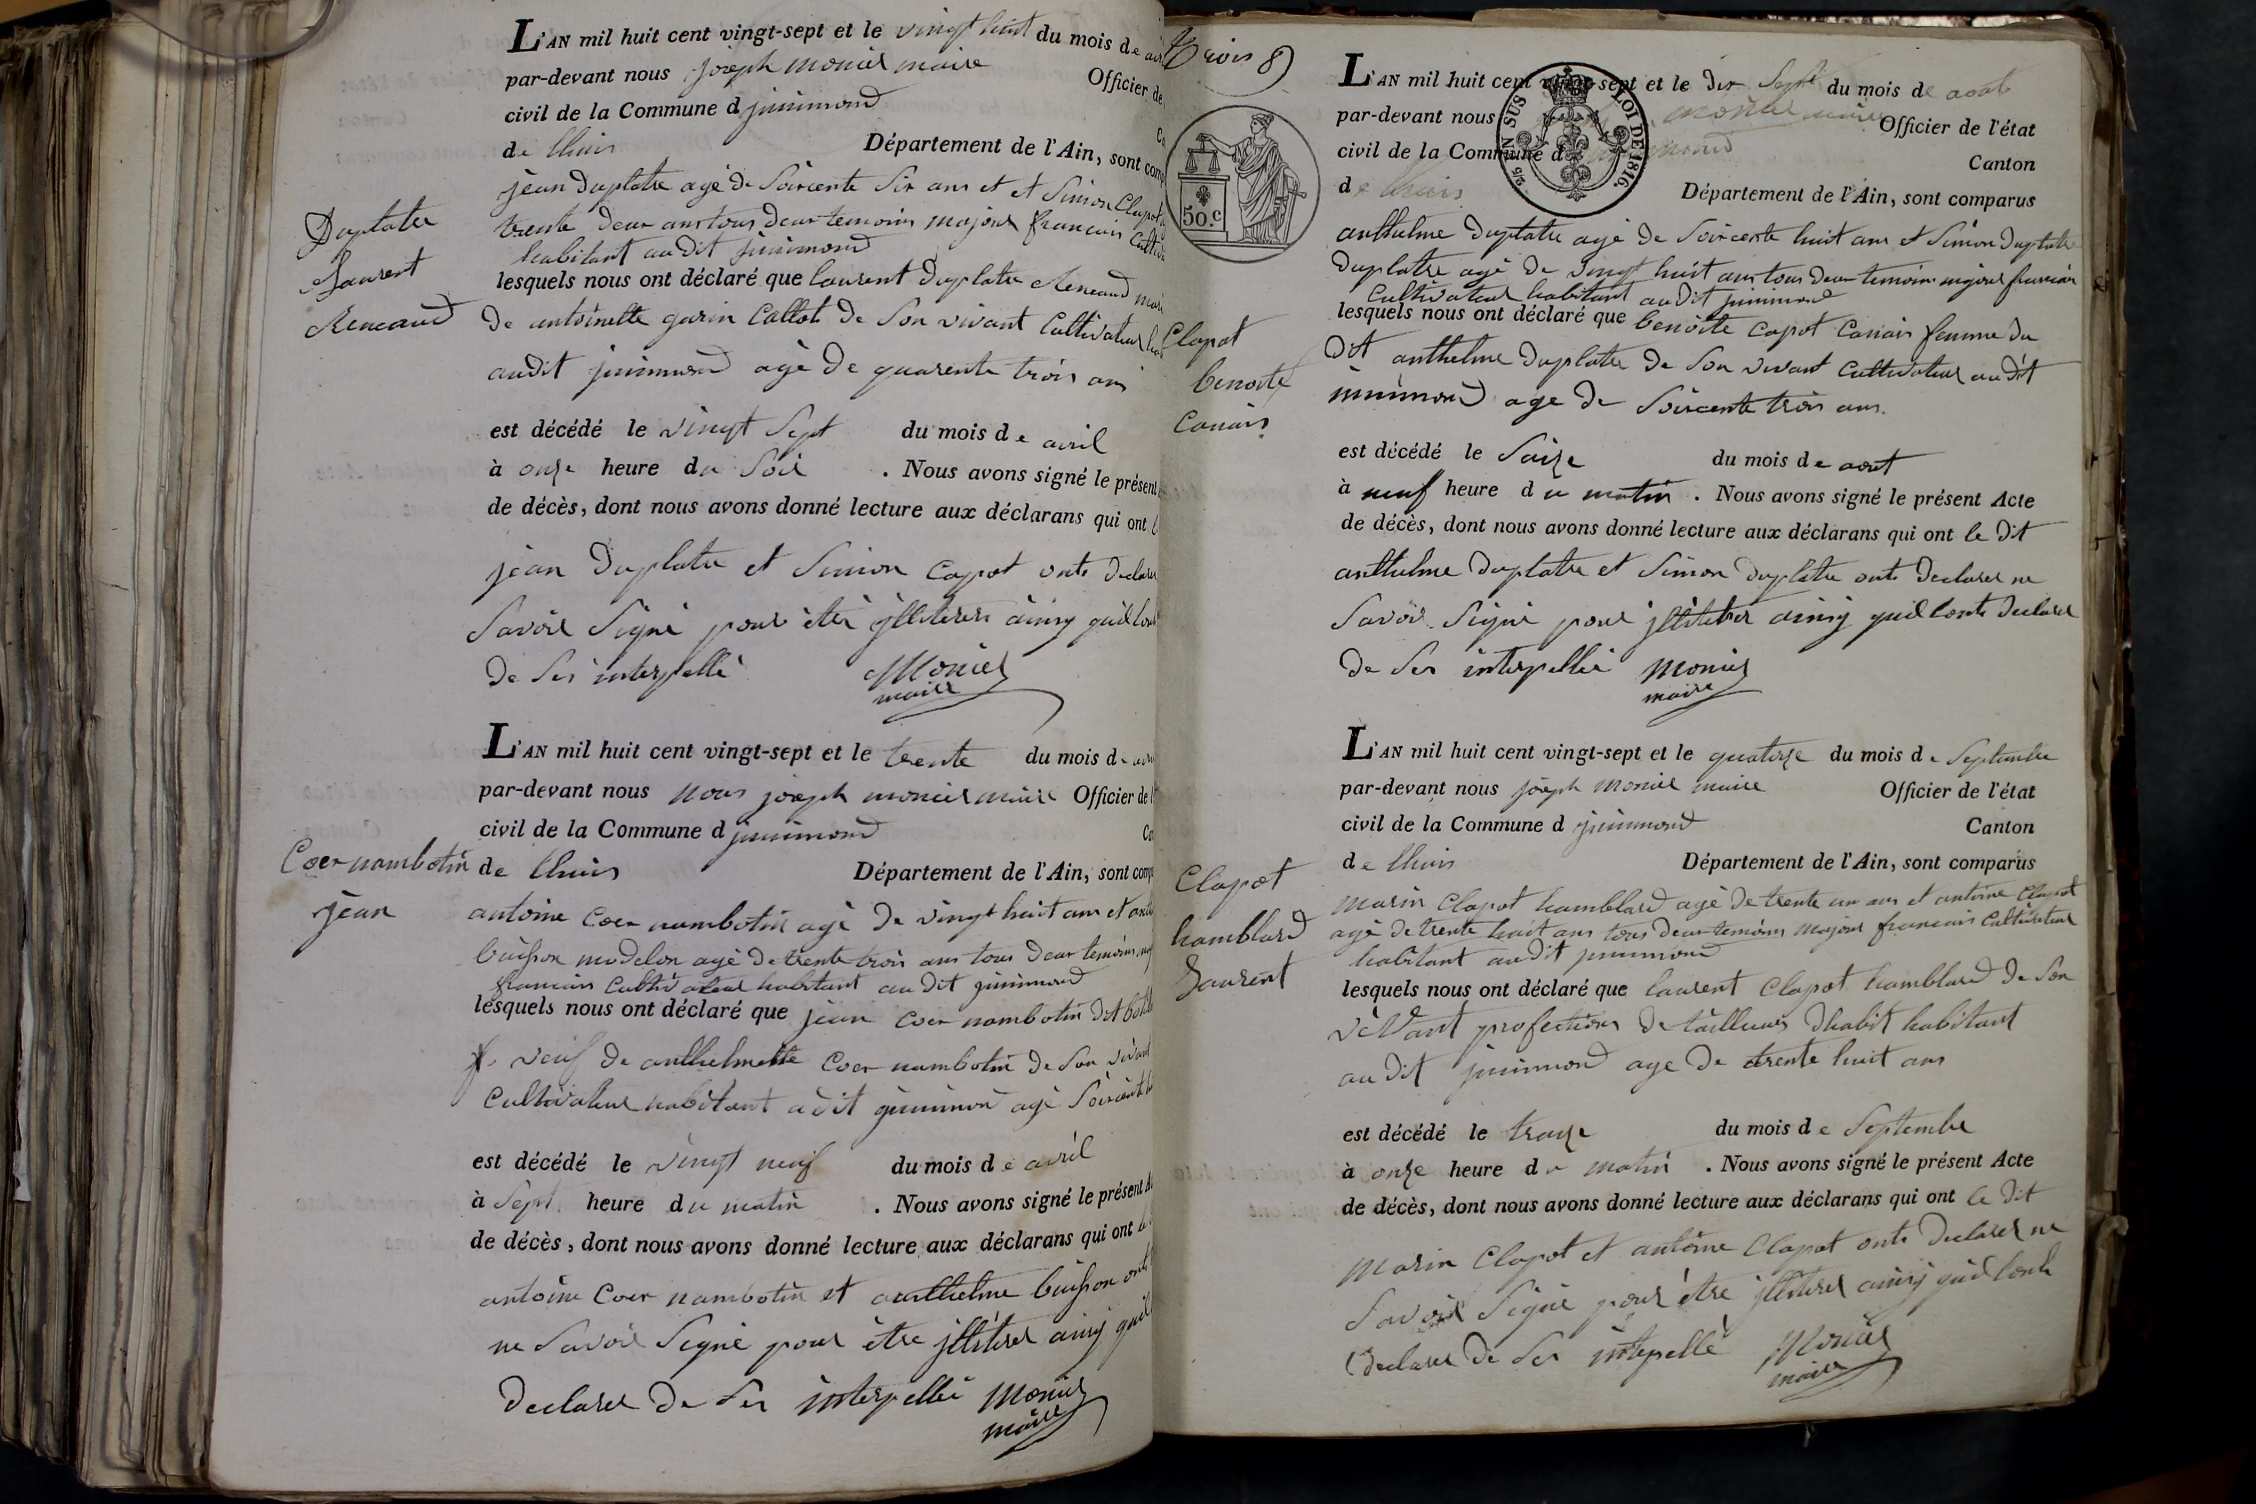 L'AN mil huit cent vingt-sept et le vingt huit du mois de
par-devant nous joseph monier maire Officier de
civil de la Commune d jnnimond
de lhuis Département de l'Ain, sont comp
jean Duplatre agé de Soixente Six ans et et Simon Clapot
trente deux ans tous deux temoins majeur francais Cultiva
habitant au dit jnnimond
Duplatre
Laurent
Reneaud
lesquels nous ont déclaré que laurent Duplatre Reneaud mari
de antoinette garin Callot de Son vivant Cultivateur
audit jnnimond agé de quarente trois ans
est décédé le vingt Sept du mois de avril
à onze heure du Soir . Nous avons signé le présent
de décès, dont nous avons donné lecture aux déclarans qui ont
jean Duplatre et Simon Capot onts Declarer
Savoir Signé pour étre jlliterer ainsy quil lont
de Ses interpellé Monier
maire
L'AN mil huit cent vingt-sept et le trente du mois de
par-devant nous nous joseph monier maire Officier de l
civil de la Commune d jnnimond
Coer nambotin
jean
de lhuis Département de l'Ain, sont comp
antoine Coer nambotin agé de vingt huit ans et
buisson modelon agé de trente trois ans tous deux temoins
francais Cultivateur habitant au dit jnnimond
lesquels nous ont déclaré que jean Coer nambotin dit
veuf de anthelmette Coer nambotin de Son vivant
Cultivateur habitant a dit jnnimond agé
est décédé le vingt neuf du mois de avril
à Sept heure du matin . Nous avons signé le présent
de décès, dont nous avons donné lecture aux déclarans qui ont
antoine Coer nambotin et anthelme buisson
ne Savoir Signé pour étre jlliterer ainsy quil
Declarer de Ses interpellé Monier
maire
Trois 8)
50.C
EN SUS
LOI DE 1816.
L'AN mil huit cent vingt-sept et le dix Sept du mois de aoat
par-devant nous monier maire Officier de l'état
civil de la Commune d Canton
de lhuis Département de l'Ain, sont comparus
anthelme Duplatre agé de Soixcente huit ans et Simon Duplatre
Duplatre agé de vingt huit ans tous deux temoins majeur francais
Cultivateur habitant au dit jnnimond
Clapot
benoite
Canais
lesquels nous ont déclaré que benoite Capot Canais femme du
dit anthelme Duplatre de Son vivant Cultivateur au dit
jnnimond age de Soixcente trois ans.
est décédé le Saize du mois de aout
à neuf heure du matin . Nous avons signé le présent Acte
de décès, dont nous avons donné lecture aux déclarans qui ont le dit
anthelme Duplatre et Simon Duplatre onts Declarer ne
Savoir Signé pour jlliterer ainsy quil lonts Declarer
de Ses interpellé Monier
maire
L'AN mil huit cent vingt-sept et le quatorze du mois de Septembre
par-devant nous joseph monier maire Officier de l'état
civil de la Commune d jnnimond Canton
de lhuis Département de l'Ain, sont comparus
Clapot
hamblard
Laurent
marin Clapot hamblard agé de trente un ans et antoine Clapot
agé de trente huit ans tous deux temoins majeur francais Cultivateur
habitant au dit jnnimond
lesquels nous ont déclaré que laurent Clapot hamblard de Son
vivant profections de tailleur dhabit habitant
au dit jnnimond age de trente huit ans
est décédé le traize du mois de Septembre
à onze heure du matin . Nous avons signé le présent Acte
de décès, dont nous avons donné lecture aux déclarans qui ont le dit
marin Clapot et antoine Clapot onts Declarer ne
Savoir Signé pour étre jlliterer ainsy quil lonts
Declarer de Ses interpellé Monier
maire